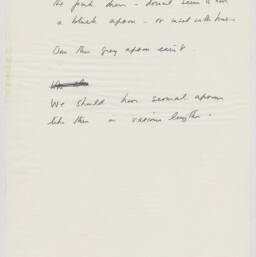 the pink dress - doesn't seem to have
a black apron - or isn't with dress -
Does the gray apron exist?
We should have several aprons
like then in various lengths -